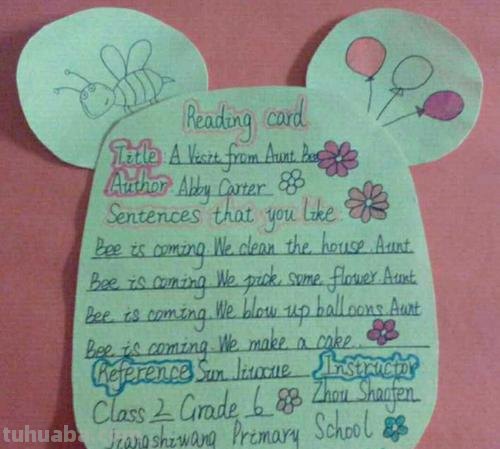 Reading card
Title: A Visit from Aunt Bee
Author: Abby Carter
Sentences that you like:
Bee is coming. We clean the house. Aunt
Bee is coming. We pick some flower. Aunt
Bee is coming. We blow up balloons. Aunt
Bee is coming. We make a cake.
Reference Sun Instructor
Zhou Shaofen
Class 2 Grade 6
Primary School
tuhuaba